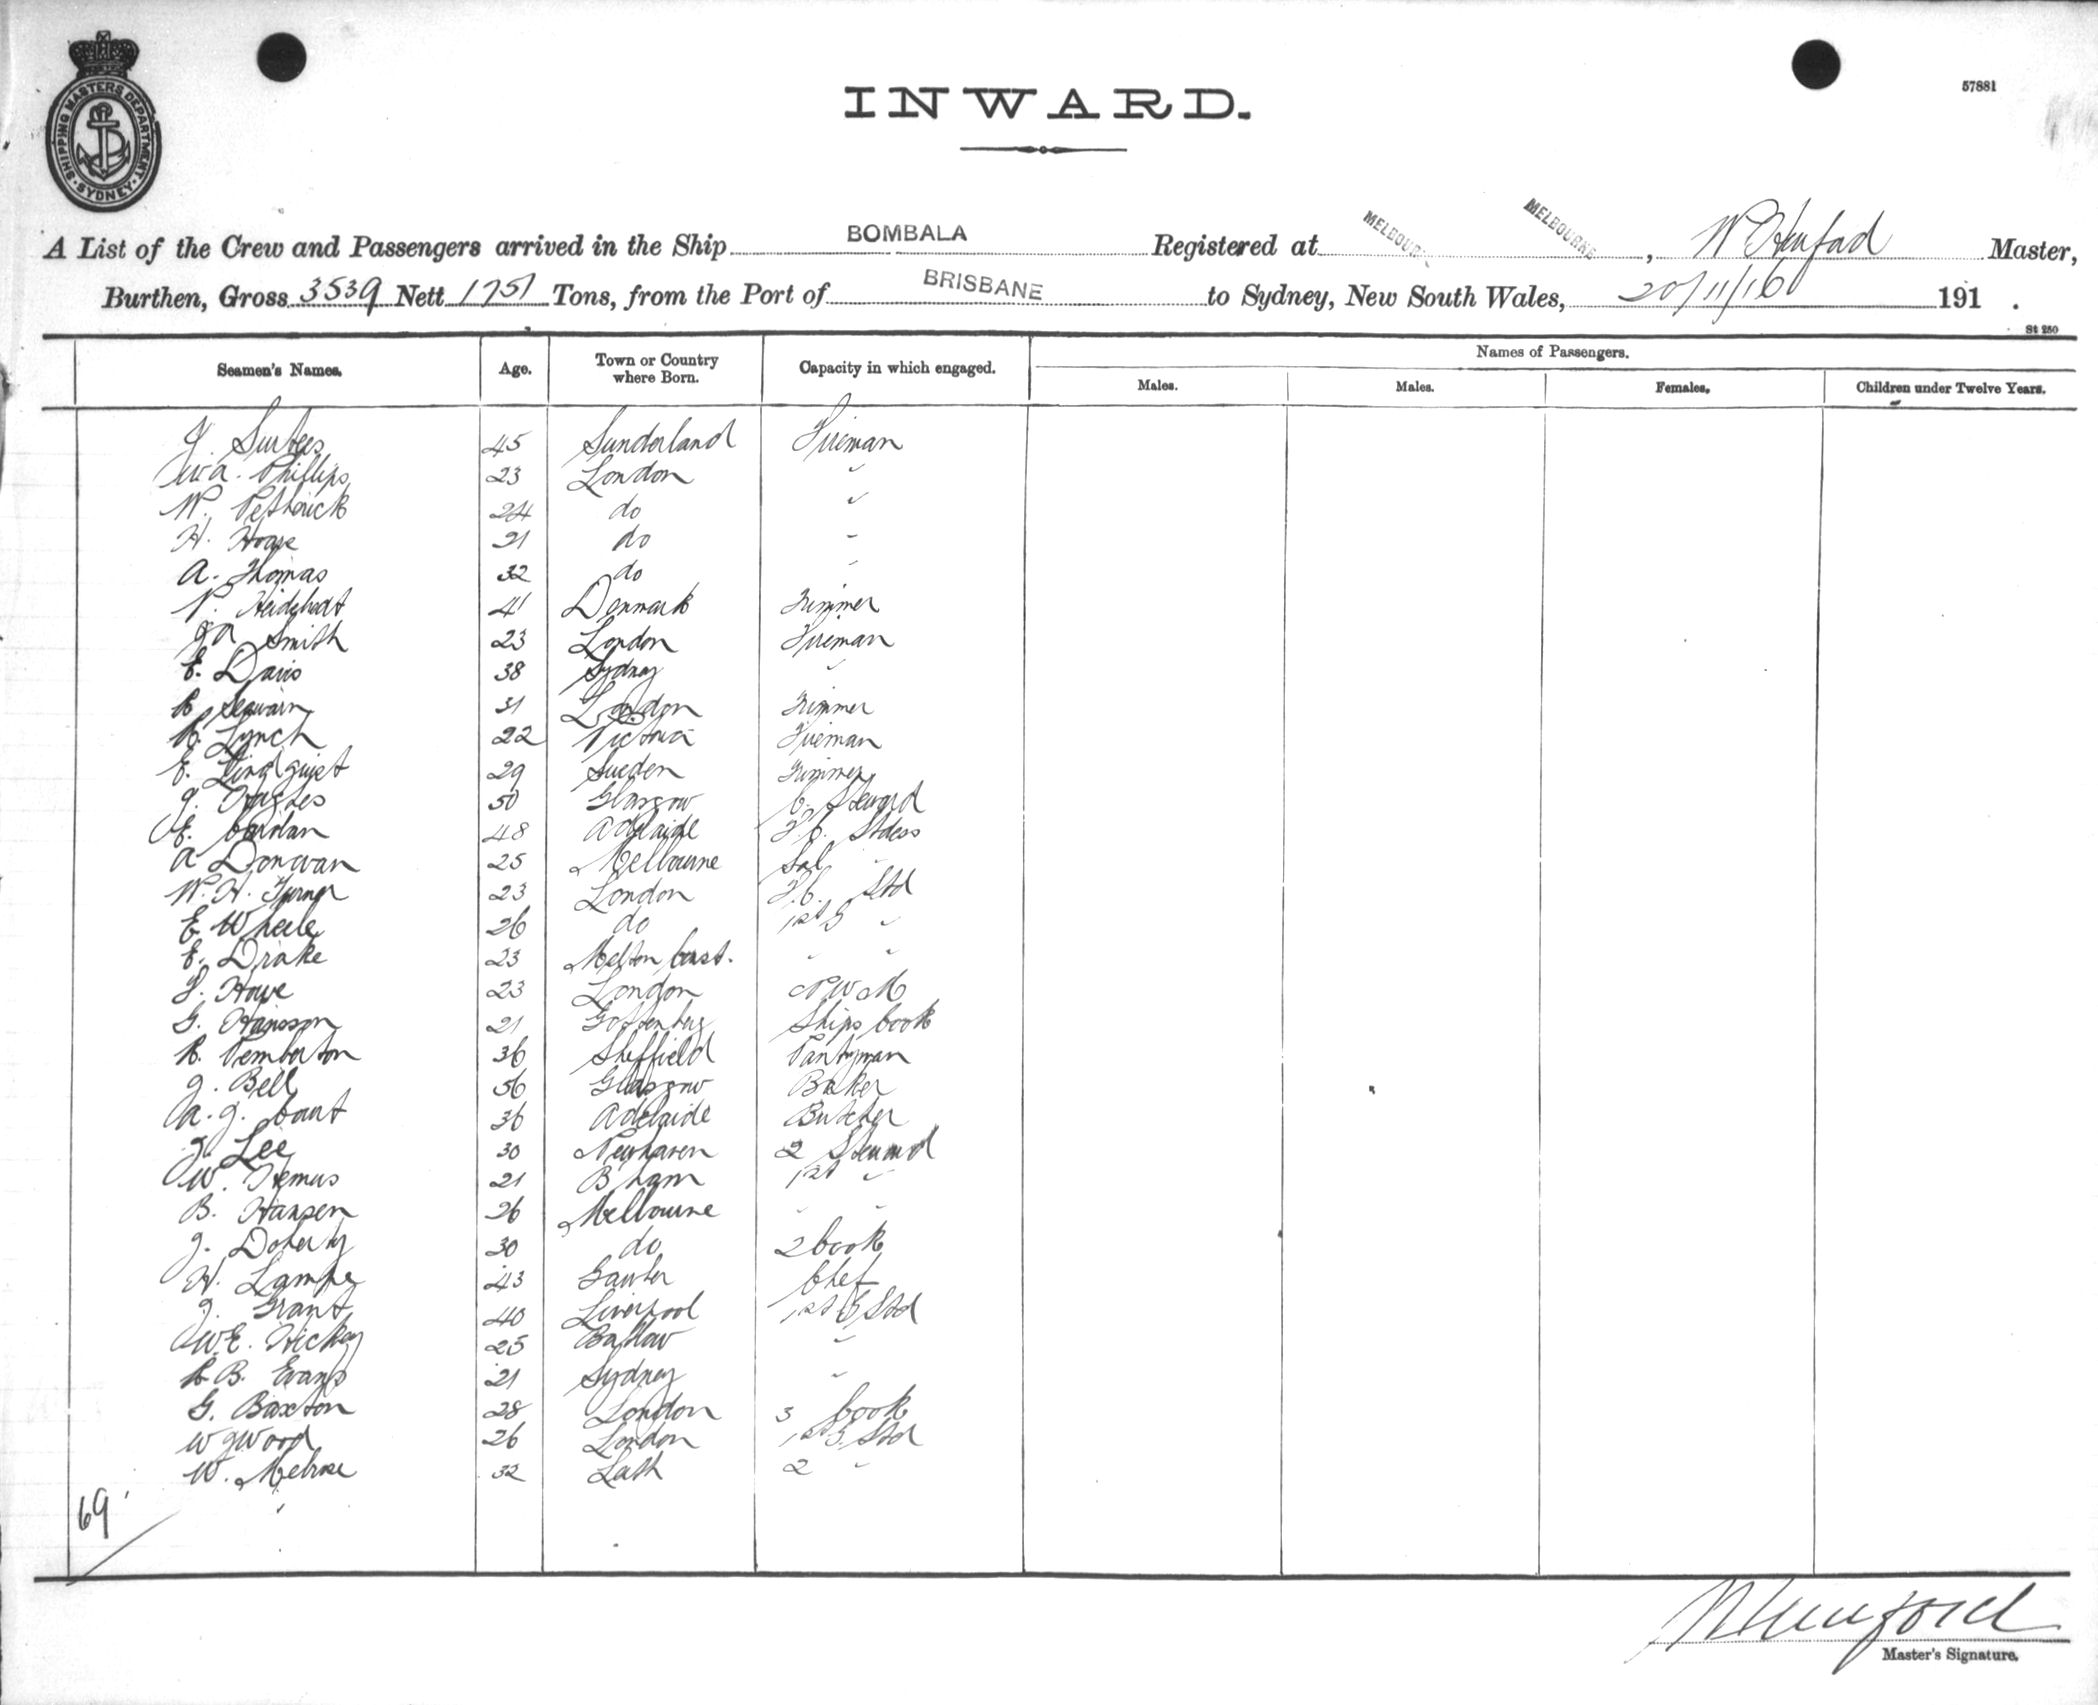 SHIPPING MASTERS DEPARTMENT. SYDNEY
57881
INWARD.
A List of the Crew and Passengers arrived in the Ship BOMBALA Registered at MELBOURNE MELBOURNE, W Hurford Master,
Burthen, Gross 3539 Nett 1751 Tons, from the Port of BRISBANE to Sydney, New South Wales, 20/11/16 191 .
St 250
Seamen's Names. Age. Town or Country where Born. Capacity in which engaged. Names of Passengers.
Males. Males. Females. Children under Twelve Years.
J. Surtees 45 Sunderland Fireman
W.A. Phillips 23 London "
W. Petherick 24 do "
H. Hoare 21 do "
A. Thomas 32 do "
P. 41 Denmark Trimmer
J A Smith 23 London Fireman
E. Davis 38 Sydney "
R 31 London Trimmer
R. Lynch 22 Victoria Fireman
E. Lindquist 29 Sweden Trimmer
J. 50 Glasgow C. Steward
E. 48 Adelaide F.C. Stdess
A Donovan 25 Melbourne Sal "
W. H. Turner 23 London F.C. Std
E Wheele 26 do 1st S "
E. Drake 23 " "
Howe 23 London
G. Hansson 21 Gottenberg Ships Cook
R. Pemberton 36 Sheffield Pantryman
J. Bell 56 Glasgow Baker
A. J. Cant 36 Adelaide Butcher
J Lee 30 Newhaven 2 Steward
W. Hemus 21 B'ham 1st "
B. Hansen 26 Melbourne " "
J. Doherty 30 do 2 Cook
H. Lampe 43 Gawler Chef
J. Grant 40 Liverpool 1st S Std
W.E. Hickey 25 "
R. B. Evans 21 Sydney "
G. Baxton 28 London 3 Cook
W J Wood 26 London 1st S. Std
W. Melrose 32 2 "
69
W Hurford
Master's Signature.